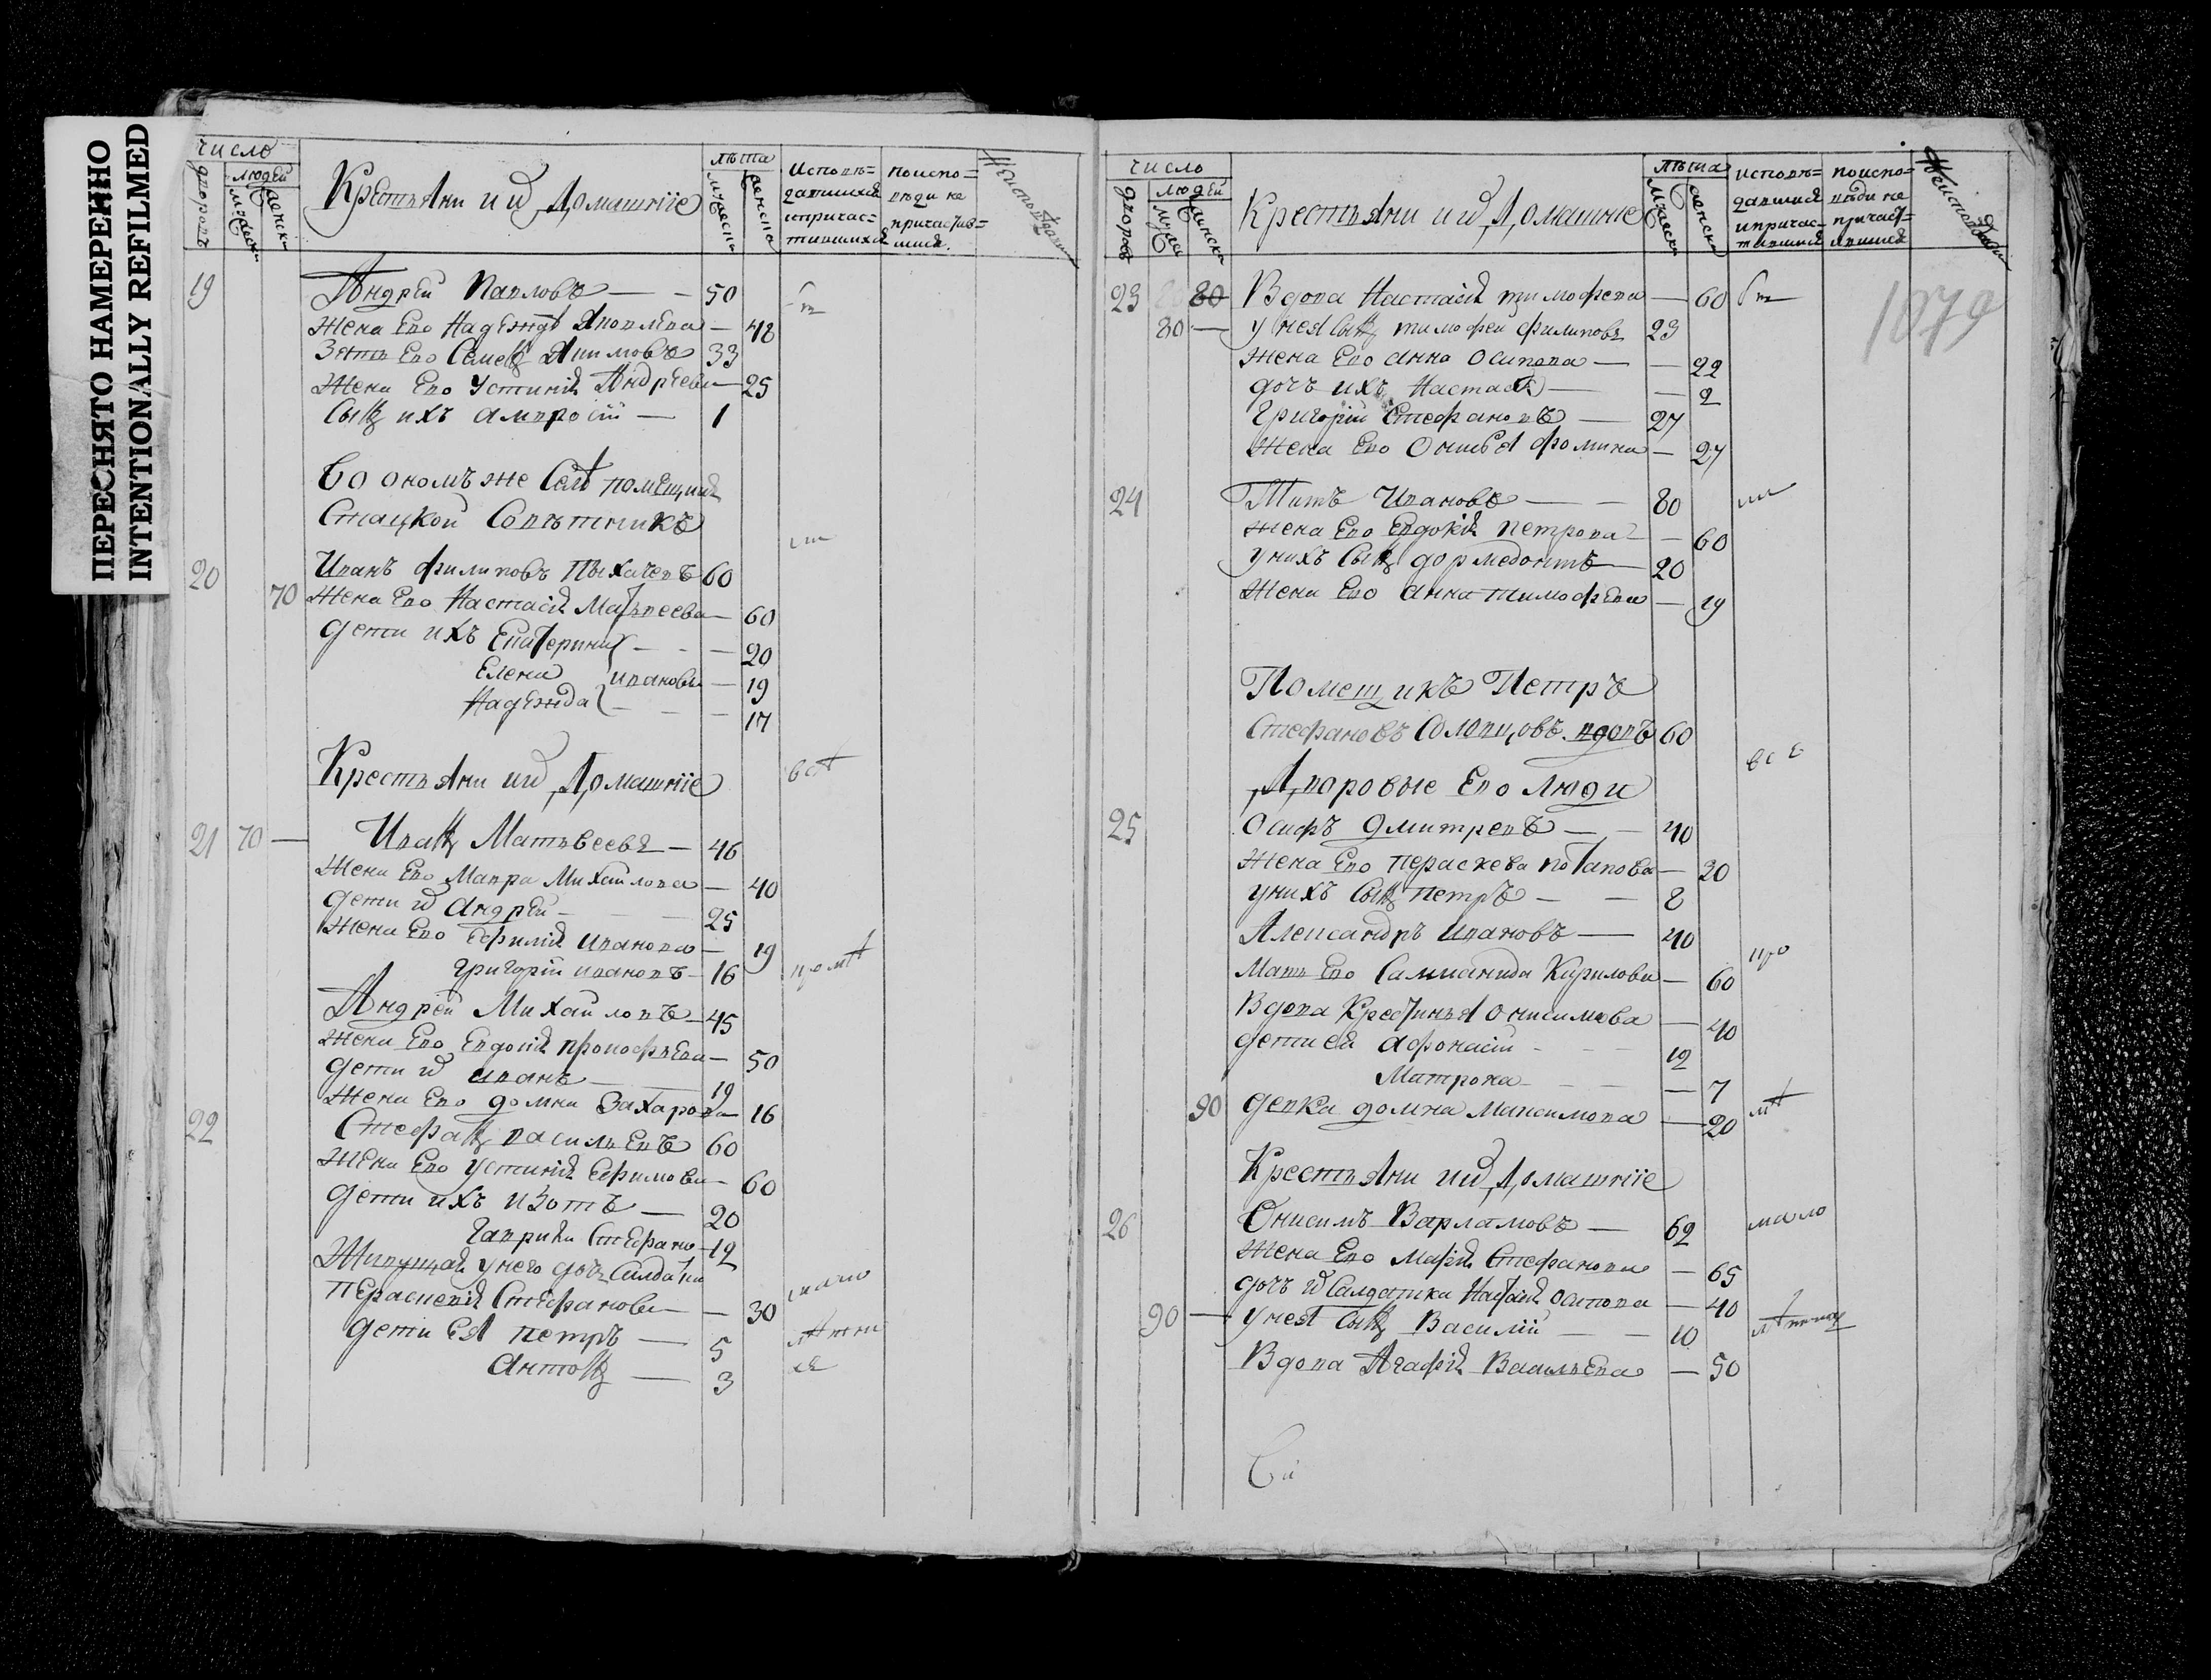 ПЕРЕСНЯТО НАМЕРЕННО
INTENTIONALLY REFILMED
число
дворовъ
людей
лѣта
Исповѣ=
давшихся
ипричас=
тившихся
поиспо=
вѣди не
причастив=
шися
Крестьяни иихъ Домашнiе
19 Андрей Павловъ — 50
Жена Его Надѣжда — 48
Зять Его Семенъ Акимовъ 33
Жена Его Устинiя Андрѣева — 25
Сынъ ихъ амвросiй — 1
Во ономъ же Селѣ помещикъ
Стацкой Совѣтникъ
20 Иванъ филиповъ Пыхачевъ 60
70 Жена Его Настасiя Матвеева — 60
дети ихъ Екатерина — 20
Елена Ивановы — 19
Надѣжда — 17
Крестьяни иихъ Домашнiе всѣ
21 70 — Иванъ Матвеевъ — 46
Жена Его Мавра Михайлова — 40
дети их Андрей — 25
Жена Его Ефимiя иванова — 19
григорiй ивановъ — 16
Андрей Михайловъ — 45
Жена Его Евдокiя прокофьева — 50
дети их иванъ — 19
Жена Его домна Захарова — 16
22 Стефанъ васильевъ 60
Жена Его устинiя Ефимова — 60
дети ихъ изотъ — 20
гаврила Стефано — 12
Живущая унего дочь Салдатка
Параскевiя Стефанова — 30 мало
дети Ея петръ — 5 лѣтни
Антонъ — 3 ея
число
дворовъ
людей
Крестьяни иихъ Домашнiе
лѣта
исповѣ=
давшися
ипричас=
тившися
поиспо=
вѣди не
причаст=
ившися
1079
23 80 Вдова Настасiя тимофева — 60
80 — у нея Сынъ тимофей филиповъ 23
Жена Его анна Осипова — 22
дочь ихъ Настасiя — 2
григорiй Стефановъ — 27
Жена Его Онисья фомина — 27
24 Титъ Ивановъ — 80
Жена Его Евдокiя петрова — 60
унихъ Сынъ дормедонтъ — 20
Жена Его анна тимофева — 19
Помещикъ Петръ
Стефановъ Соловцовъ вдовъ 60
Дворовые Его люди все
25 Осифъ дмитревъ — 40
Жена Его Пераскева потапова — 30
унихъ Сынъ петръ — 8
Александръ ивановъ — 40
Мать Его Саломанида Кирилова — 60
Вдова Крестинья Онисимова — 40
дети ей афонасiй — 12
Матрона — 7
90 девка домна Максимова — 20
Крестьяни иихъ Домашнiе
26 Онисимъ Варламовъ — 62 мало
Жена Его Марiя Стефанова — 65
дочь их Салдатка Настасiя Осипова — 40
90 — унея Сынъ Василiй — 10
Вдова Агафiя Васильева — 50